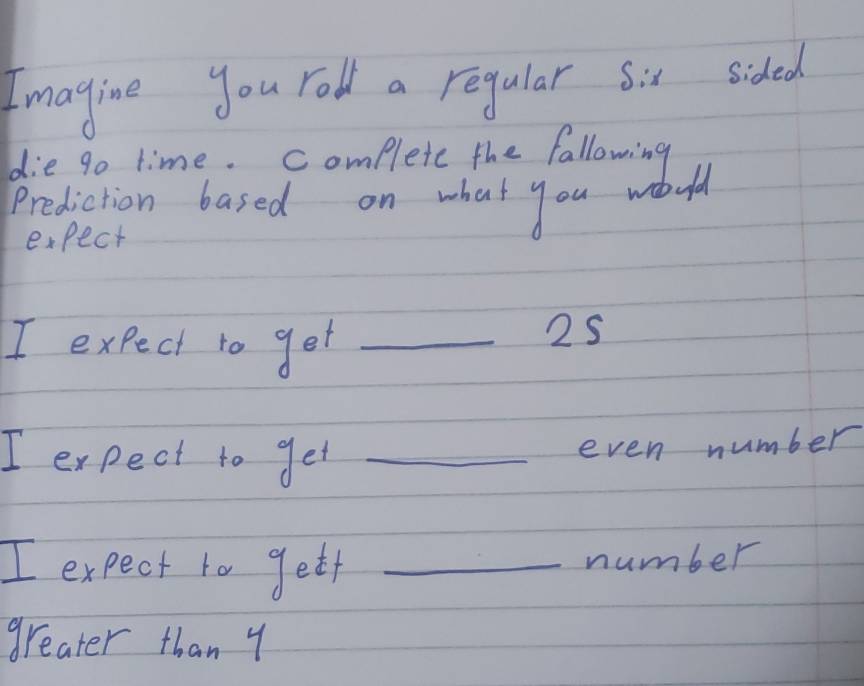 Imagine you roll a regular six sided
die 90 time. Complete the fallowing
Prediction based on what you would
expect
I expect to get ——— 2S
I expect to get ——— even number
I expect to gett ——— number
greater than 4